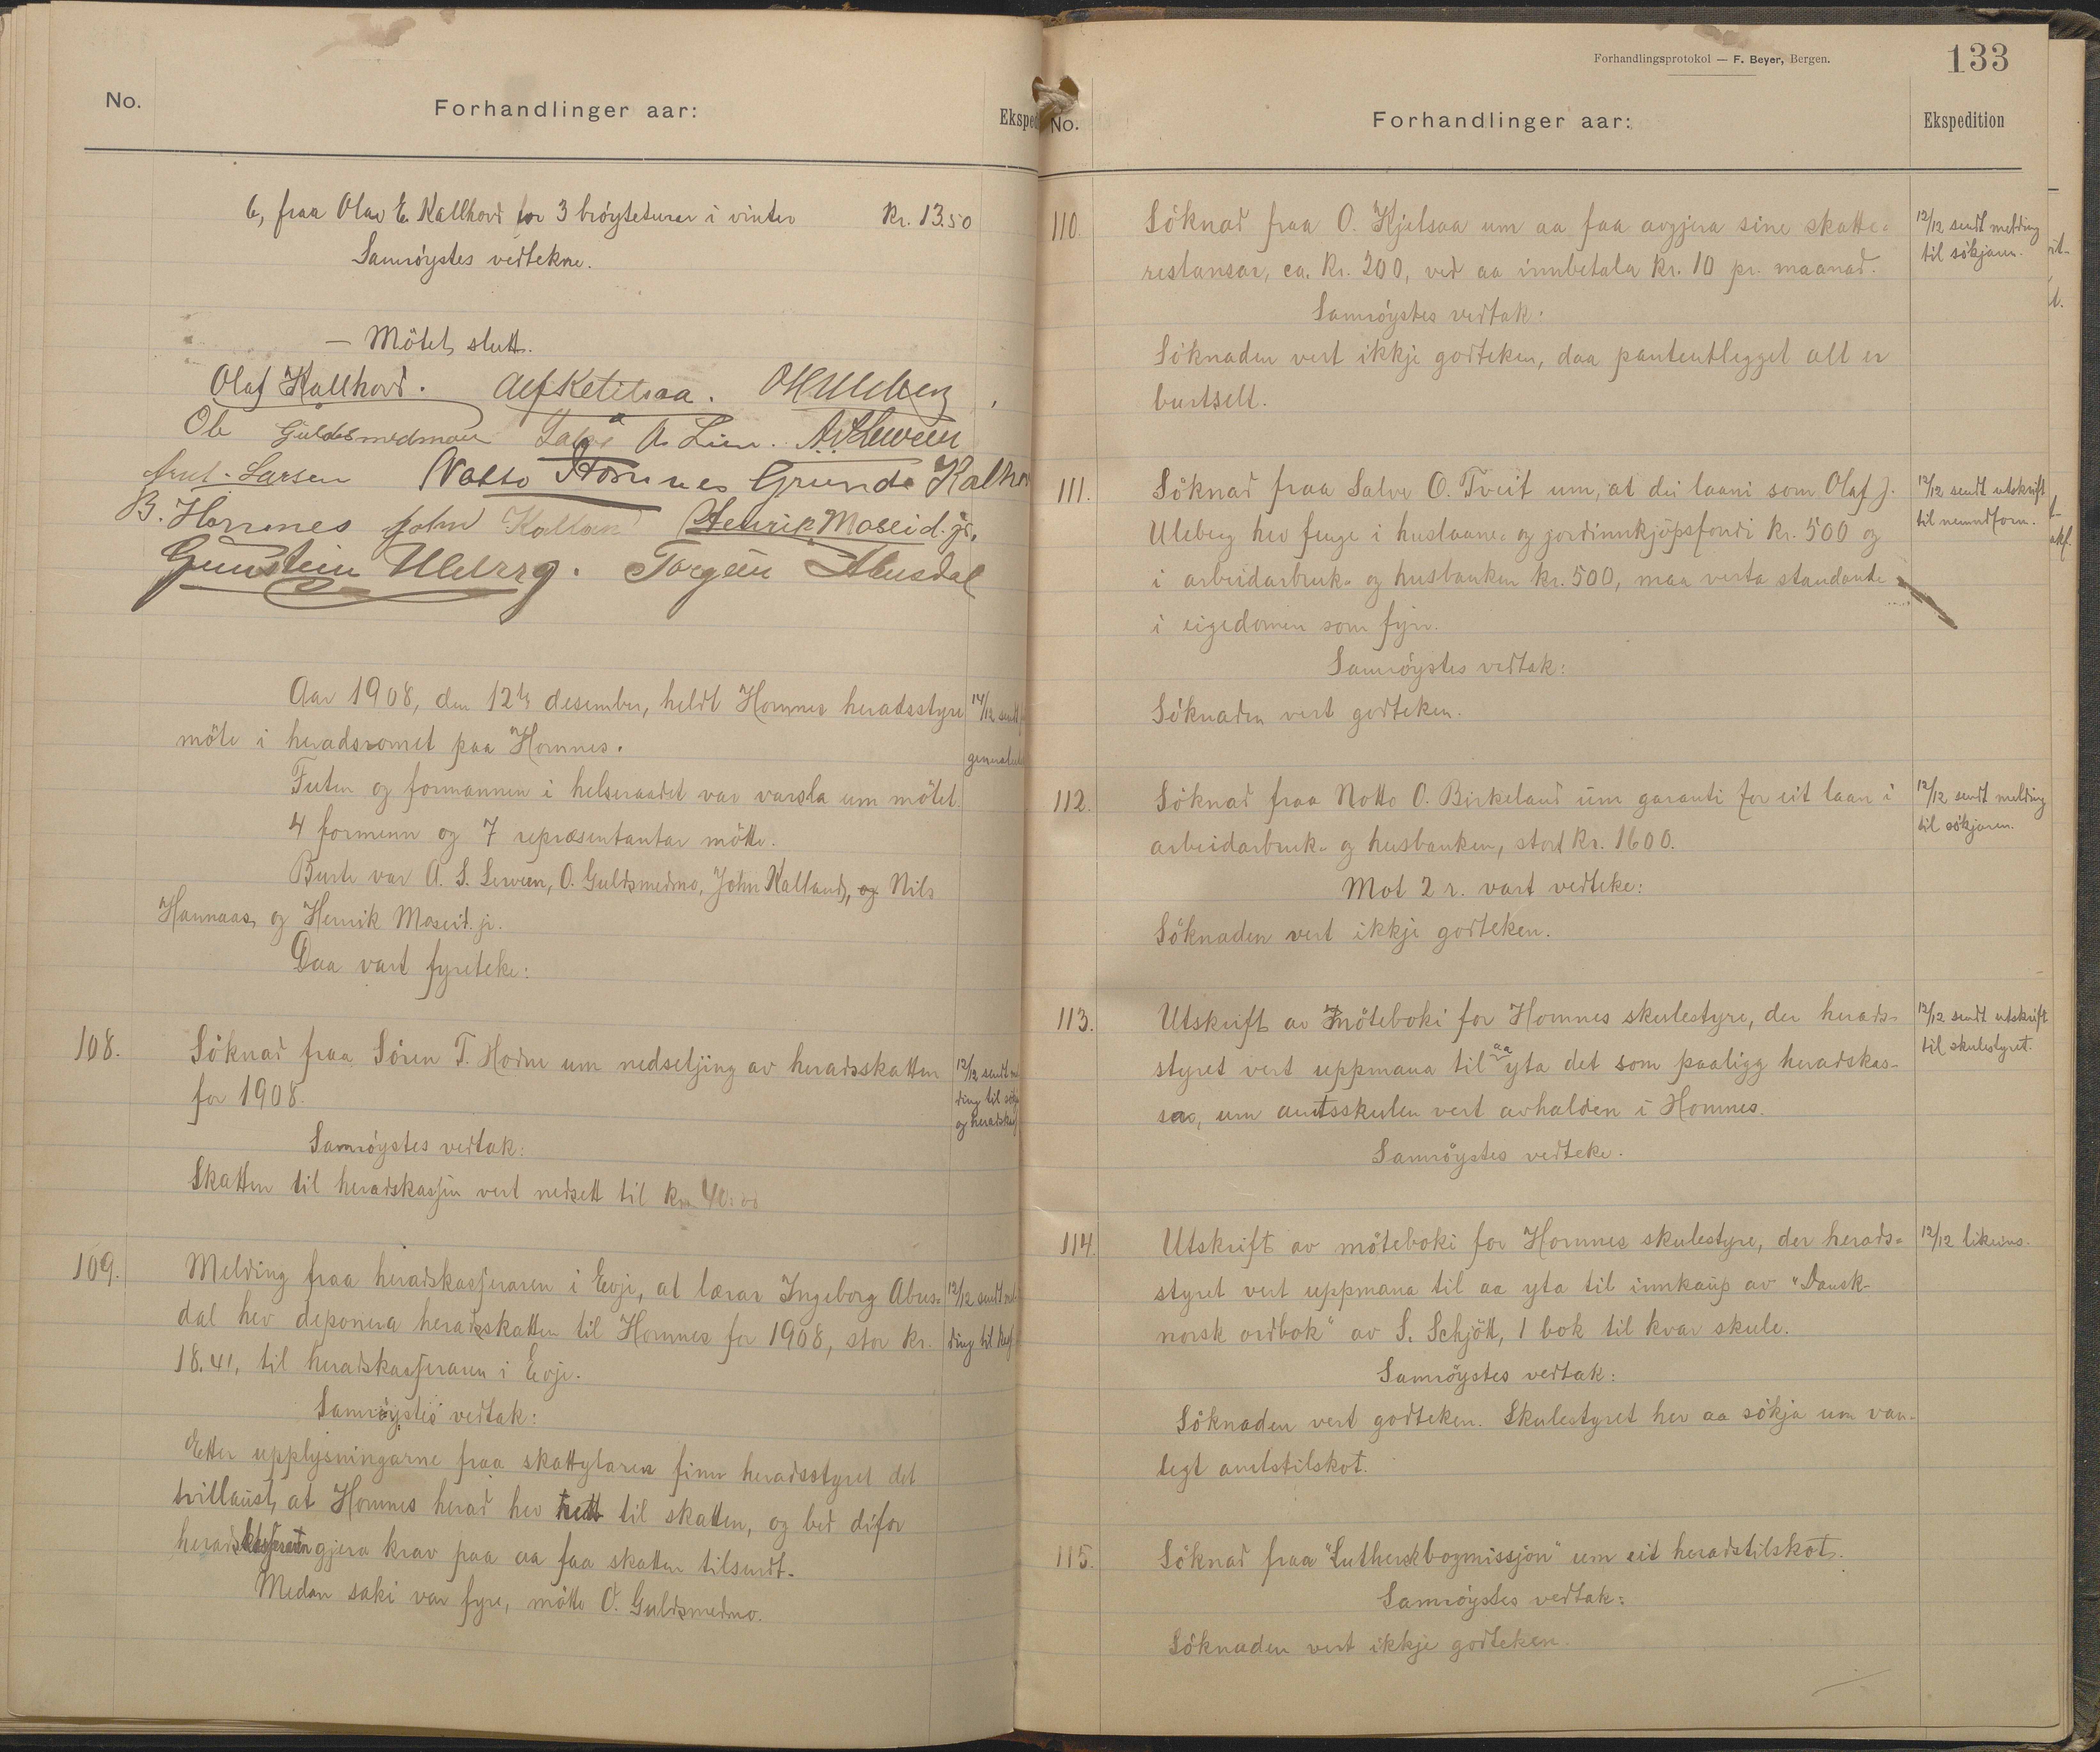 No.
Forhandlinger aar:
Ekspe
6, fraa Olav E. Kallhovd for 3 brøyteturar i vinter Kr. 13.50
Samrøystes vedtekne.
— Mötet slutt.
Olaf Kallhovd. Alf Ketilsaa. O H Uleberg
Ole Guldsmedmoen A. Lien.
Larsen Notto Hornnes Grunde Kalho
B. Hornnes John Kalland Henrik Moseid. jr.
Gunstein Uleberg. Torgeir Abusdal
Aar 1908, den 12te desember, heldt Hornnes heradsstyre
möte i heradsromet paa Hornnes.
14/12 sendt
general
Futen og formannen i helseraadet var varsla um mötet.
4 formenn og 7 representantar mötte.
Burte var A. S. Serveen, O. Guldsmedmo, John Kalland, og Nils
Hannaas, og Henrik Moseid. jr.
Daa vart fyreteke:
108.
Söknad fraa Sören T. Hodne um nedsetjing av heradsskatten
for 1908.
12/12 sendt mel
ding til sökja
og heradskas
Samröystes vedtak:
Skatten til heradskassen vert nedsett til kr. 40.00
109.
Melding fraa heradskasseraren i Evje, at lærar Ingeborg Abus-
dal hev deponera heradsskatten til Hornnes for 1908, stor kr.
18.41, til heradskasseraren i Evje.
12/12 sendt mel
ding til
Samröystes vedtak:
Etter upplysningarne fraa skattytaren finn heradsstyret det
tvillaust, at Hornnes herad hev rett til skatten, og bed difor
heradskasseraren gjera krav paa aa faa skatten tilsendt.
Medan saki var fyre, mötte O. Guldsmedmo.
Forhandlingsprotokol — F. Beyer, Bergen.
133
No.
Forhandlinger aar:
Ekspedition
110.
Söknad fraa O. Kjetsaa um aa faa avgjera sine skatte-
restansar, ca. Kr. 200, ved aa innbetala Kr. 10 pr. maanad.
12/12 sendt melding
til sökjaren.
Samröystes vedtak:
Söknaden vert ikkje godteken, daa panteutlegget alt er
burtselt.
111.
Söknad fraa Salve O. Tveit um, at dei laani som Olaf J.
Uleberg hev fenge i huslaane- og jordinnkjöpsfondi kr. 500 og
i arbeidarbruk- og husbanken kr. 500, maa verta standande
i eigedomen som fyrr.
12/12 sendt utskrift
til nemndform.
Samröystes vedtak:
Söknaden vert godteken.
112.
Söknad fraa Notto O. Birkeland um garanti for eit laan i
arbeidarbruk- og husbanken, stort kr. 1600.
12/12 sendt melding
til sökjaren.
Mot 2 r. vart vedteke:
Söknaden vert ikkje godteken.
113.
Utskrift av möteboki for Hornnes skulestyre, der herads-
styret vert uppmana til aa yta det som paaligg heradskas-
sa, um amtsskulen vert avhalden i Hornnes.
12/12 sendt utskrift
til skulestyret.
Samröystes vedteke.
114.
Utskrift av möteboki for Hornnes skulestyre, der herads-
styret vert uppmana til aa yta til innkaup av "Dansk-
norsk ordbok" av S. Schjött, 1 bok til kvar skule.
12/12 likeins.
Samröystes vedtak:
Söknaden vert godteken. Skulestyret hev aa sökja um van-
legt amtstilskot.
115.
Söknad fraa "Luthersk bogmissjon" um eit heradstilskot.
Samröystes vedtak:
Söknaden vert ikkje godteken.